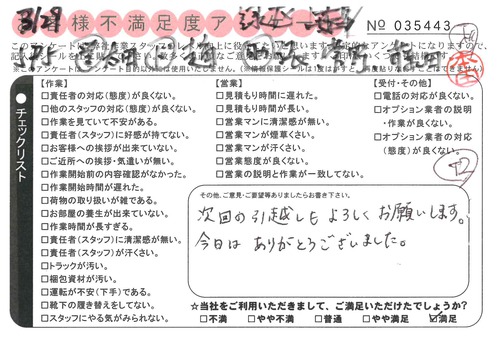 3/29
お客様不満足度ア
No 035443
【作業】
□責任者の対応(態度)が良くない。
□他のスタッフの対応(態度)が良くない。
□作業を見ていて不安がある。
□責任者(スタッフ)に好感が持てない。
□お客様への挨拶が出来ていない。
□ご近所への挨拶・気遣いが無い。
□作業開始前の内容確認がなかった。
□作業開始時間が遅れた。
□荷物の取り扱いが雑である。
□お部屋の養生が出来ていない。
□作業時間が長すぎる。
□責任者(スタッフ)に清潔感が無い。
□責任者(スタッフ)が汗くさい。
□トラックが汚い。
□梱包資材が汚い。
□運転が不安(下手)である。
□靴下の履き替えをしてない。
□スタッフにやる気がみられない。
チェックリスト
【営業】
□見積もり時間に遅れた。
□見積もり時間が長い。
□営業マンに清潔感が無い。
□営業マンが煙草くさい。
□営業マンが汗くさい。
□営業態度が良くない。
□営業の説明と作業が一致してない。
【受付・その他】
□電話の対応が良くない。
□オプション業者の説明・作業が良くない。
□オプション業者の対応(態度)が良くない。
その他、ご意見・ご要望等ありましたらお書き下さい。
次回の引越しもよろしくお願いします。
今日はありがとうございました。
☆当社をご利用いただきまして、ご満足いただけたでしょうか？
□不満 □やや不満 □普通 □やや満足 ☑満足